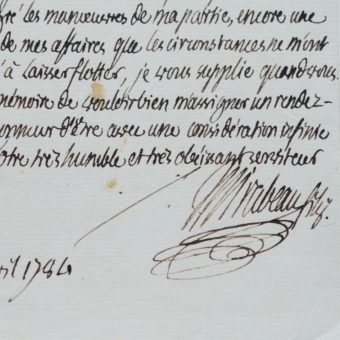 gré les manœuvres de ma partie, encore une
de mes affaires que les circonstances ne m'ont
à laisser flotter, je vous supplie quand vous
mémoire de vouloir bien m'assigner un rendez-
onneur d'être avec une considération infinie
otre très humble et très obéissant serviteur
Mirabeau fils.
ril 1784